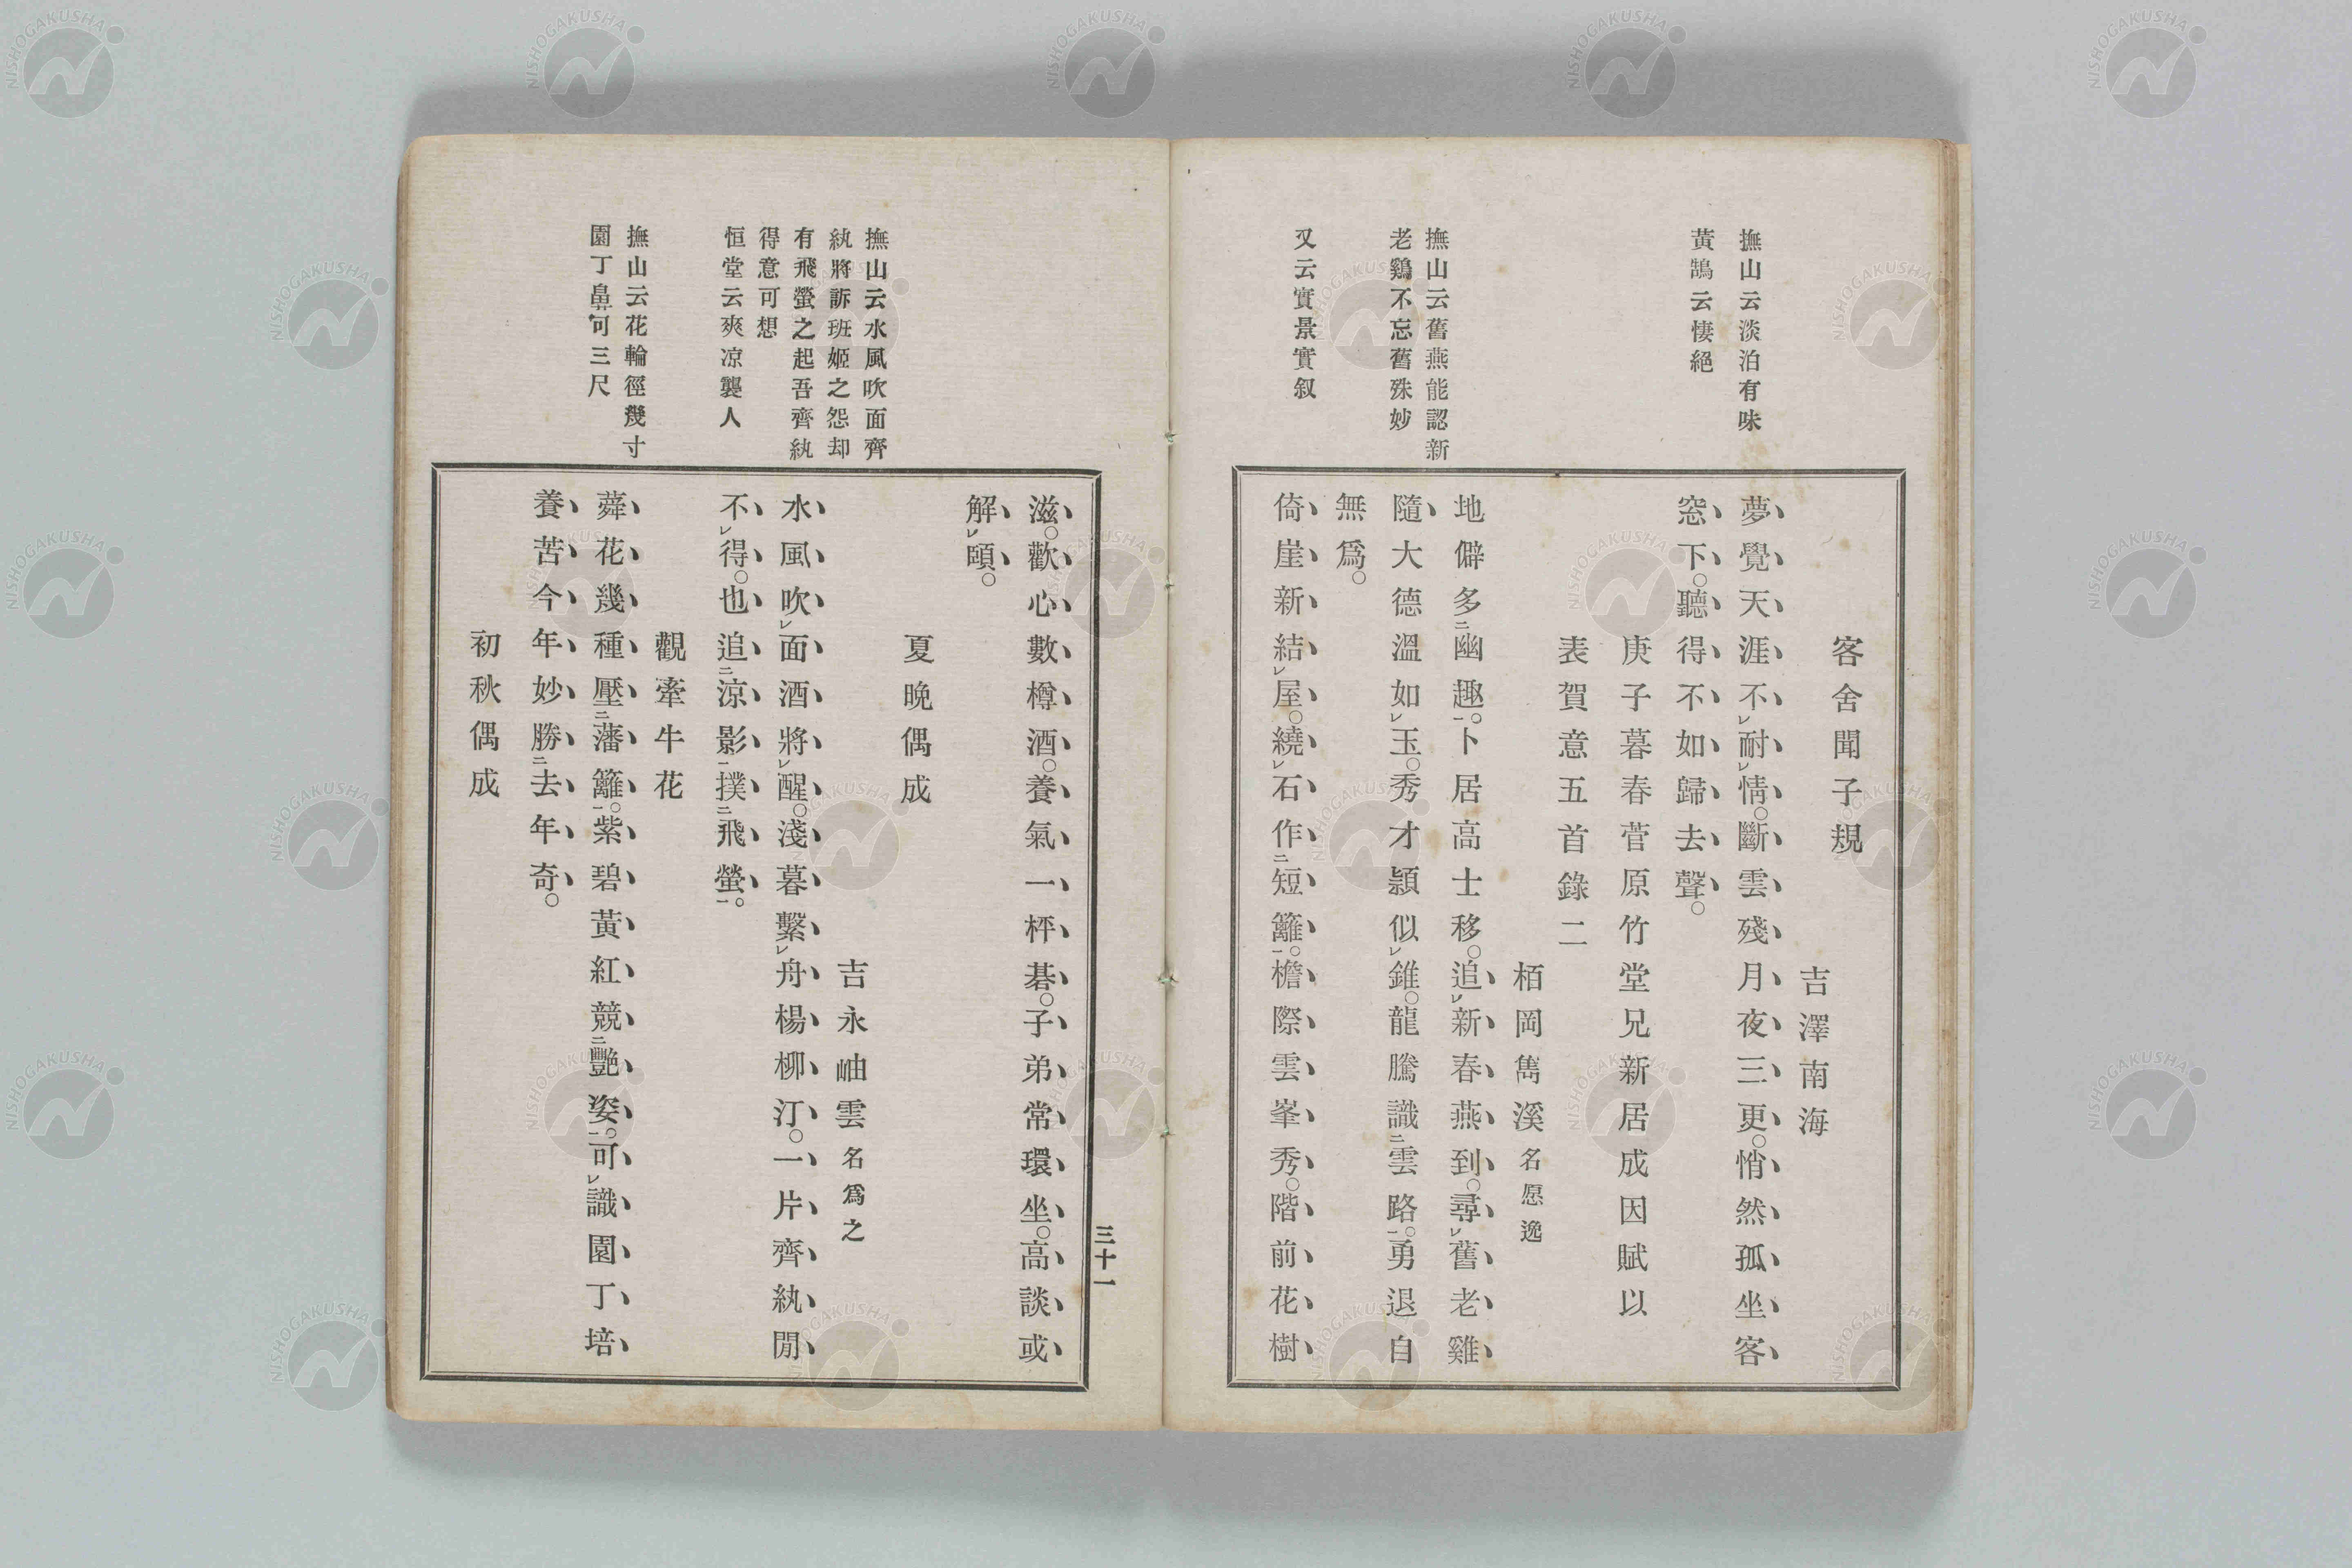 撫山云淡泊有味
黃鵠云悽絕
撫山云舊燕能認新
老鷄不忘舊殊妙
又云實景實叙
客舍聞子規
吉澤南海
夢覺天涯不レ耐レ情。斷雲殘月夜三更。悄然孤坐客
窓下。聽得不如歸去聲。
庚子暮春菅原竹堂兄新居成因賦以
表賀意五首錄二
栢岡雋溪名愿逸
地僻多二幽趣一。卜居高士移。追レ新春燕到。尋レ舊老雞
隨。大德溫如レ玉。秀才穎似レ錐。龍騰識二雲路一。勇退自
無爲。
倚崖新結レ屋。繞レ石作二短籬一。檐際雲峯秀。階前花樹
撫山云水風吹面齊
紈將訴班姬之怨却
有飛螢之起吾齊紈
得意可想
恒堂云爽凉襲人
撫山云花輪徑幾寸
園丁鼻可三尺
三十一
滋。歡心數樽酒。養氣一枰碁。子弟常環坐。高談或
解レ頤。
夏晚偶成
吉永岫雲名爲之
水風吹レ面酒將レ醒。淺暮繫レ舟楊柳汀。一片齊紈閒
不レ得。也追二涼影一撲二飛螢一。
觀牽牛花
蕣花幾種壓二藩籬一。紫碧黃紅競二艷姿一。可レ識園丁培
養苦今年妙勝二去年奇。
初秋偶成
NISHOGAKUSHA